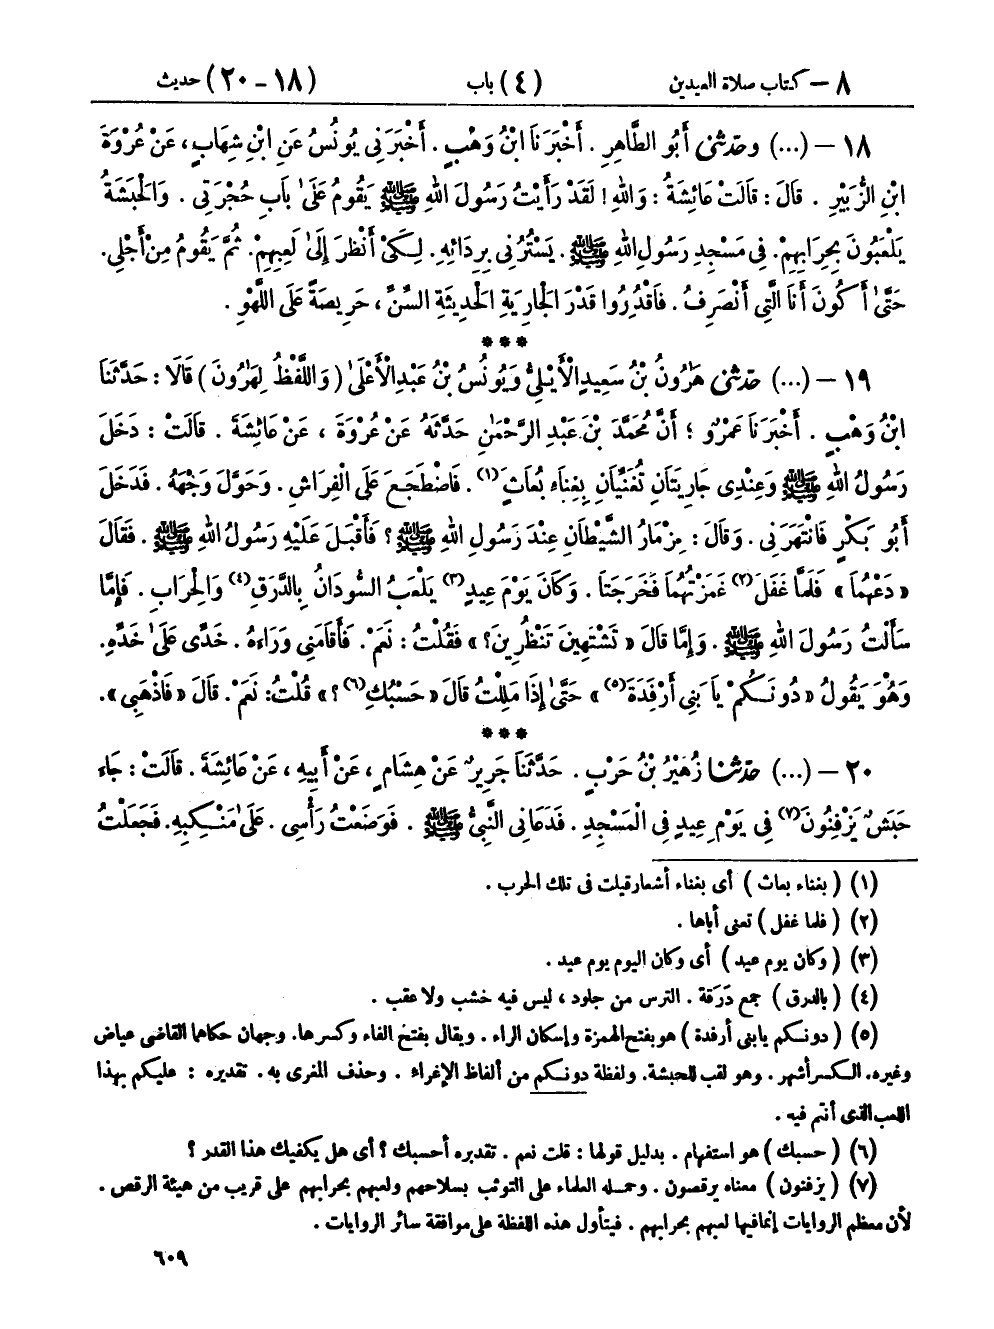 ٨ - كتاب صلاة العيدين (٤) باب (١٨ - ٢٠) حديث
١٨ - (...) وحَدَّثَنِي أَبُو الطَّاهِرِ. أَخْبَرَنَا ابْنُ وَهْبٍ. أَخْبَرَنِي يُونُسُ عَنِ ابْنِ شِهَابٍ، عَنْ عُرْوَةَ
ابْنِ الزُّبَيْرِ. قَالَ: قَالَتْ عَائِشَةُ: وَاللهِ! لَقَدْ رَأَيْتُ رَسُولَ اللهِ ﷺ يَقُومُ عَلَىٰ بَابِ حُجْرَتِي. وَالْحَبَشَةُ
يَلْعَبُونَ بِحِرَابِهِمْ. فِي مَسْجِدِ رَسُولِ اللهِ ﷺ. يَسْتُرُنِي بِرِدَائِهِ. لِكَيْ أَنْظُرَ إِلَىٰ لَعِبِهِمْ. ثُمَّ يَقُومُ مِنْ أَجْلِي.
حَتَّىٰ أَكُونَ أَنَا الَّتِي أَنْصَرِفُ. فَاقْدُرُوا قَدْرَ الْجَارِيَةِ الْحَدِيثَةِ السِّنِّ، حَرِيصَةً عَلَى اللَّهْوِ.
***
١٩ - (...) حَدَّثَنِي هَٰرُونُ بْنُ سَعِيدٍ الْأَيْلِيُّ وَيُونُسُ بْنُ عَبْدِ الْأَعْلَىٰ (وَاللَّفْظُ لِهَٰرُونَ) قَالَا: حَدَّثَنَا
ابْنُ وَهْبٍ. أَخْبَرَنَا عَمْرٌو؛ أَنَّ مُحَمَّدَ بْنَ عَبْدِ الرَّحْمَٰنِ حَدَّثَهُ عَنْ عُرْوَةَ، عَنْ عَائِشَةَ. قَالَتْ: دَخَلَ
رَسُولُ اللهِ ﷺ وَعِنْدِي جَارِيَتَانِ تُغَنِّيَانِ بِغِنَاءِ بُعَاثَ(١). فَاضْطَجَعَ عَلَى الْفِرَاشِ. وَحَوَّلَ وَجْهَهُ. فَدَخَلَ
أَبُو بَكْرٍ فَانْتَهَرَنِي. وَقَالَ: مِزْمَارُ الشَّيْطَانِ عِنْدَ رَسُولِ اللهِ ﷺ؟ فَأَقْبَلَ عَلَيْهِ رَسُولُ اللهِ ﷺ. فَقَالَ
« دَعْهُمَا » فَلَمَّا غَفَلَ(٢) غَمَزْتُهُمَا فَخَرَجَتَا. وَكَانَ يَوْمَ عِيدٍ(٣) يَلْعَبُ السُّودَانُ بِالدَّرَقِ(٤) وَالْحِرَابِ. فَإِمَّا
سَأَلْتُ رَسُولَ اللهِ ﷺ. وَإِمَّا قَالَ « تَشْتَهِينَ تَنْظُرِينَ؟ » فَقُلْتُ: نَعَمْ. فَأَقَامَنِي وَرَاءَهُ. خَدِّي عَلَىٰ خَدِّهِ.
وَهُوَ يَقُولُ « دُونَكُمْ يَا بَنِي أَرْفَدَةَ(٥) » حَتَّىٰ إِذَا مَلِلْتُ قَالَ « حَسْبُكِ(٦)؟ » قُلْتُ: نَعَمْ. قَالَ « فَاذْهَبِي ».
***
٢٠ - (...) حَدَّثَنَا زُهَيْرُ بْنُ حَرْبٍ. حَدَّثَنَا جَرِيرٌ عَنْ هِشَامٍ، عَنْ أَبِيهِ، عَنْ عَائِشَةَ. قَالَتْ: جَاءَ
حَبَشٌ يَزْفِنُونَ(٧) فِي يَوْمِ عِيدٍ فِي الْمَسْجِدِ. فَدَعَانِي النَّبِيُّ ﷺ. فَوَضَعْتُ رَأْسِي. عَلَىٰ مَنْكِبِهِ. فَجَعَلْتُ
(١) (بغناء بعاث) أى بغناء أشعار قيلت فى تلك الحرب.
(٢) (فلما غفل) تعنى أباها.
(٣) (وكان يوم عيد) أى وكان اليوم يوم عيد.
(٤) (بالدرق) جمع دَرَقة. الترس من جلود، ليس فيه خشب ولا عقب.
(٥) (دونكم يا بنى أرفدة) هو بفتح الهمزة وإسكان الراء. ويقال بفتح الفاء وكسرها. وجهان حكاهما القاضى عياض
وغيره. الكسر أشهر. وهو لقب للحبشة. ولفظة دونكم من ألفاظ الإغراء. وحذف المغرى به. تقديره: عليكم بهذا
اللعب الذى أنتم فيه.
(٦) (حسبك) هو استفهام. بدليل قولها: قلت نعم. تقديره أحسبك؟ أى هل يكفيك هذا القدر؟
(٧) (يزفنون) معناه يرقصون. وحمله العلماء على التوثب بسلاحهم ولعبهم بحرابهم على قريب من هيئة الرقص.
لأن معظم الروايات إنما فيها لعبهم بحرابهم. فيتأول هذه اللفظة على موافقة سائر الروايات.
٦٠٩